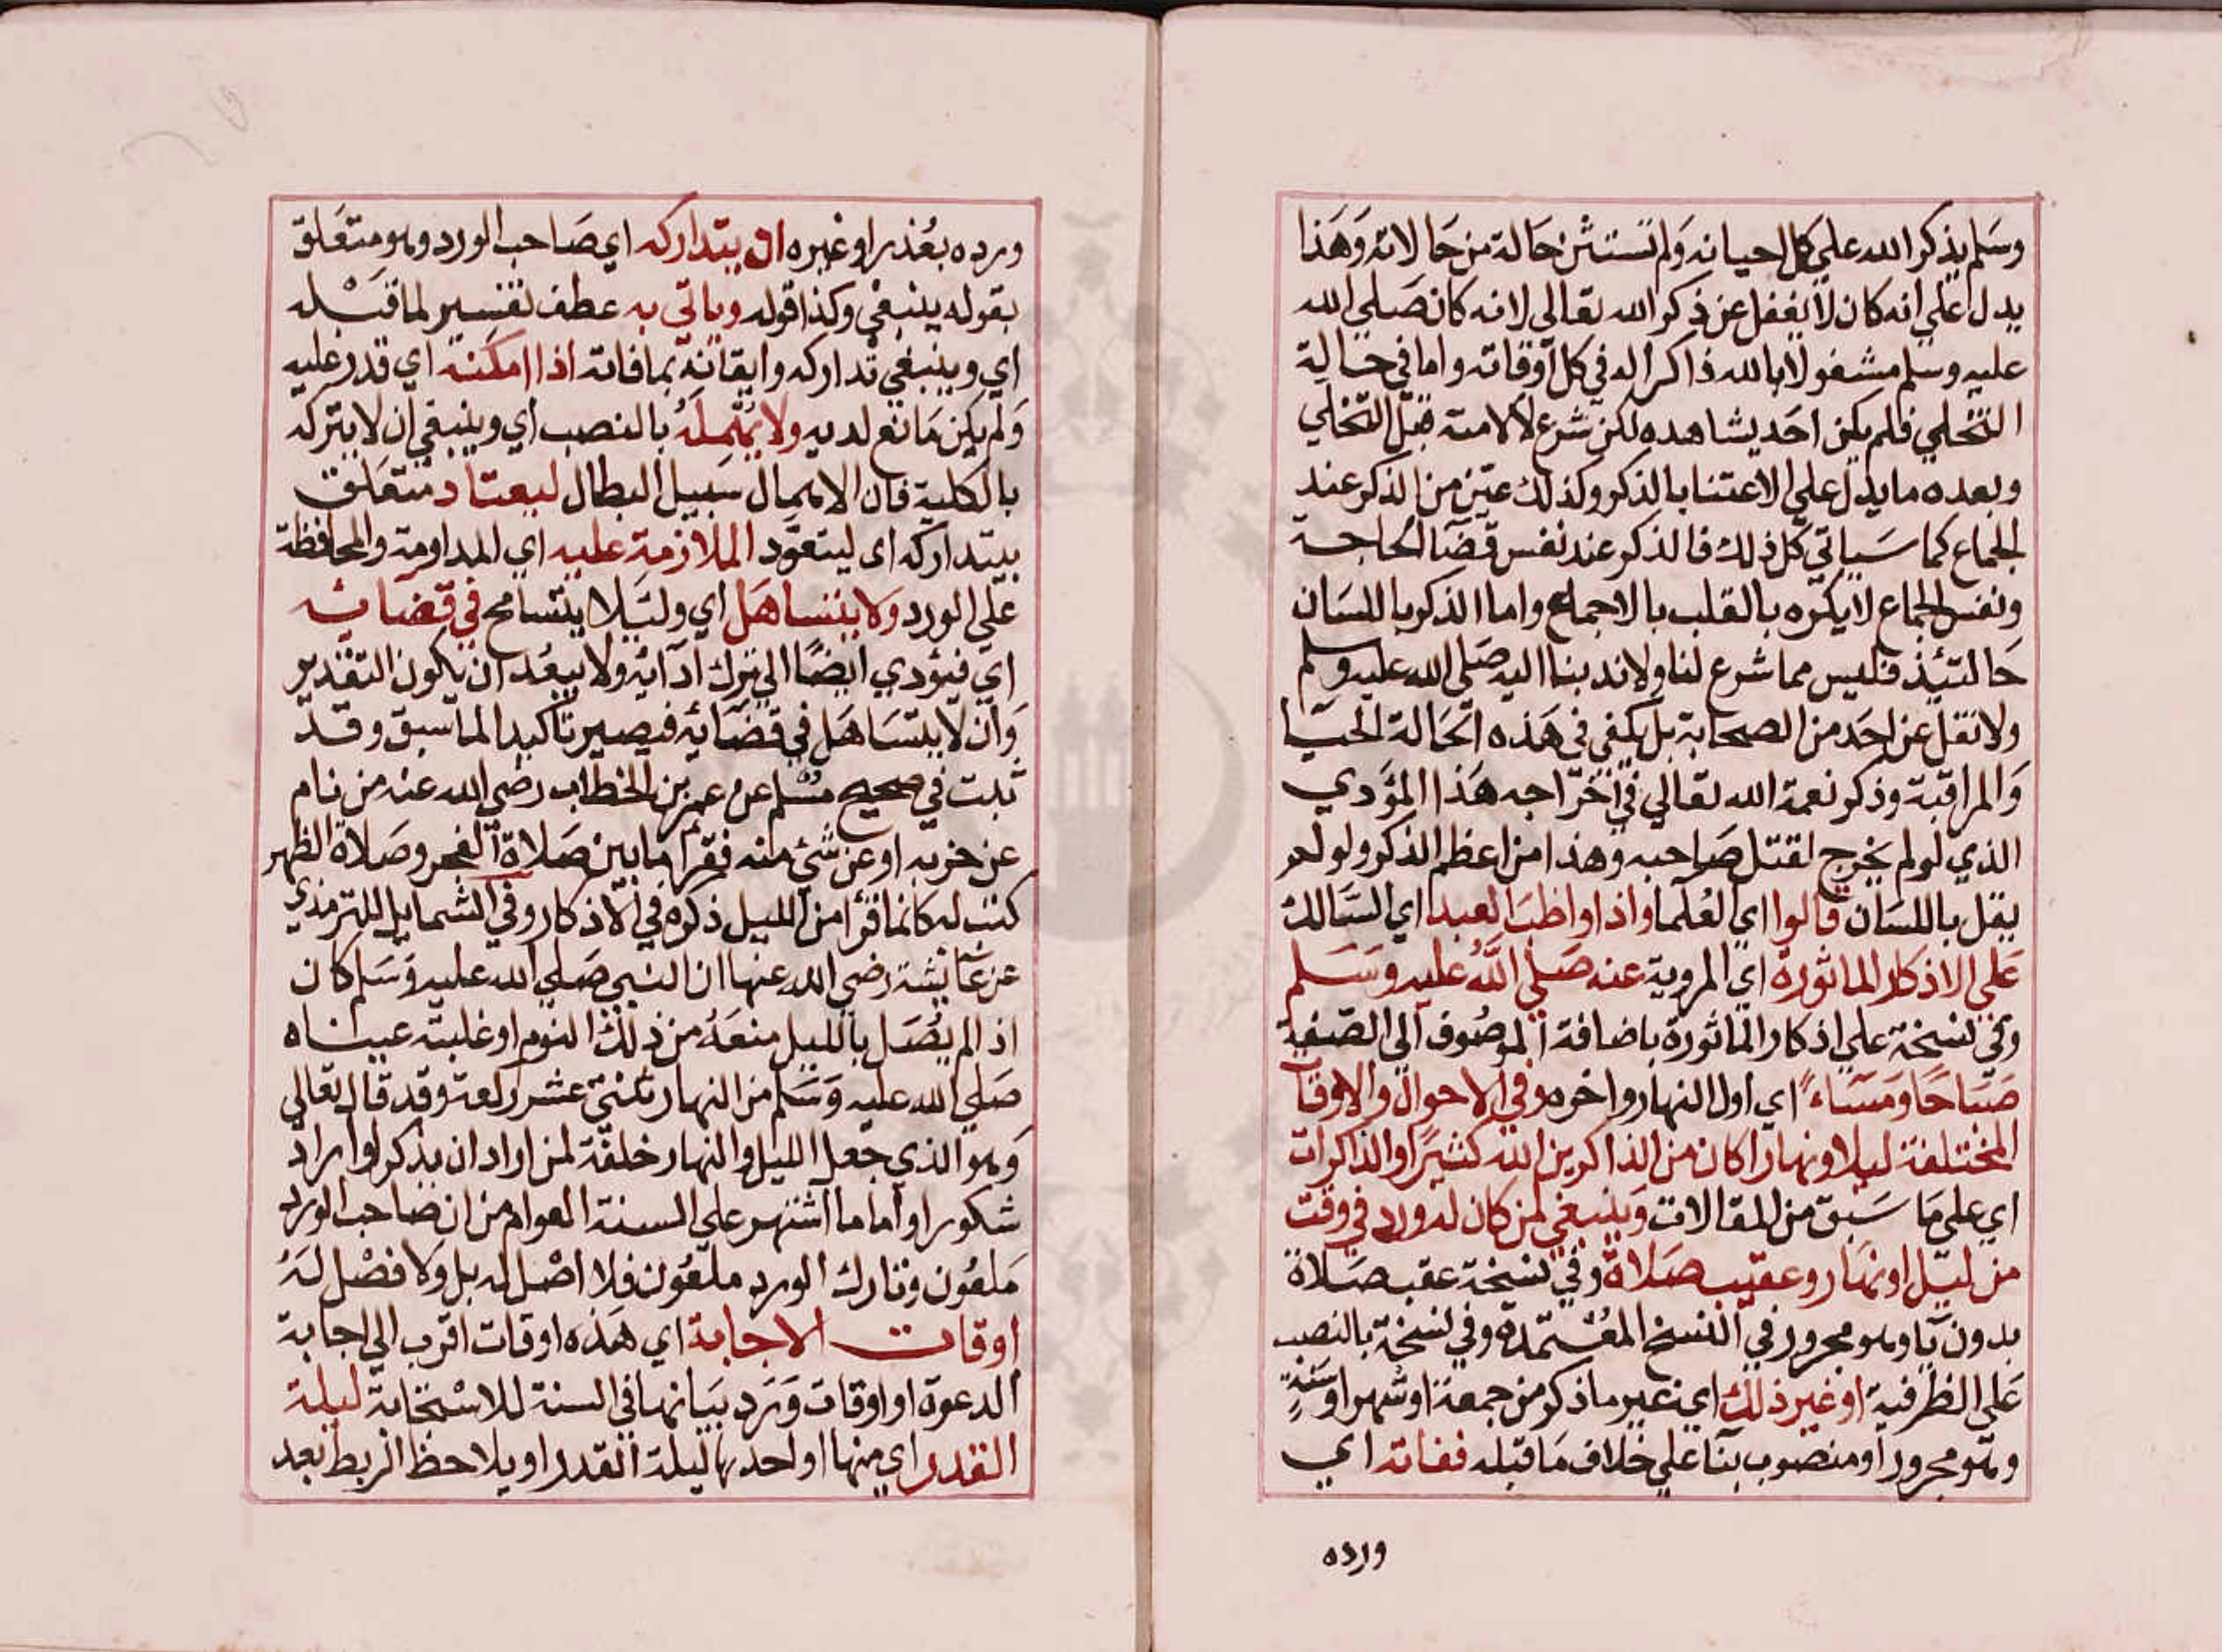 وسلم يذكر الله علي كل احيانه ولم تستثن حالة من حالاته وهذا
يدل علي انه كان لا يغفل عن ذكر الله تعالى لانه كان صلي الله
عليه وسلم مشغولا بالله ذاكرا له في كل اوقاته واما في حالة
التخلي فلم يكن احد يشاهده لكن شرع لامته قبل التخلي
وبعده ما يدل علي الاعتنا بالذكر وكذلك عين من الذكر عند
الجماع كما سياتي كل ذلك فالذكر عند نفس قضا الحاجة
ونفس الجماع لا يكره بالقلب بالاجماع واما الذكر باللسان
حالتئذ فليس مما شرع لنا ولا ندبنا اليه صلي الله عليه وسلم
ولا نقل عن احد من الصحابة بل يكفي في هذه الحالة الحيا
والمراقبة وذكر نعمة الله تعالي في اخراجه هذا المؤدي
الذي لو لم يخرج لقتل صاحبه وهذا من اعظم الذكر ولو لم
يقل باللسان قالوا اي العلما واذا واظب العبد اي السالك
علي الاذكار الماثورة اي المروية عنه صلي الله عليه وسلم
وفي نسخة علي اذكار الماثورة باضافة الموصوف الي الصفة
صباحا ومساء اي اول النهار واخره وفي الاحوال والاوقات
المختلفة ليلا ونهارا كان من الذاكرين الله كثيرا والذاكرات
اي علي ما سبق من المقالات وينبغي لمن كان له ورد في وقت
من ليل او نهار وعقيب صلاة وفي نسخة عقب صلاة
بدون يا وهو مجرور في النسخ المعتمدة وفي نسخة بالنصب
علي الظرفية او غير ذلك اي غير ما ذكر من جمعة او شهر او سنة
وهو مجرور او منصوب بنا علي خلاف ما قبله ففاته اي
ورده
ورده بعذر او غيره ان يتداركه اي صاحب الورد وهو متعلق
بقوله ينبغي وكذا قوله وياتي به عطف تفسير لما قبله
اي وينبغي تداركه وايقانه بما فاته اذا امكنه اي قدر عليه
ولم يكن مانع لديه ولا يهمله بالنصب اي وينبغي ان لا يتركه
بالكلية فان الاهمال سبيل البطال ليعتاد متعلق
بيتداركه اى ليتعود الملازمة عليه اي المداومة والمحافظة
علي الورد ولا يتساهل اي وليلا يتسامح في قضائه
اي فيؤدي ايضا الي ترك ادآئه ولا يبعد ان يكون التقدير
وان لا يتساهل في قضائه فيصير تاكيدا لما سبق وقد
ثبت في صحيح مسلم عن عمر بن الخطاب رضي الله عنه من نام
عن حزبه او عن شئ منه فقرأه ما بين صلاة الفجر وصلاة الظهر
كتب له كانما قرأ من الليل ذكره في الاذكار وفي الشمايل للترمذي
عن عائشة رضي الله عنها ان النبي صلي الله عليه وسلم كان
اذا لم يصل بالليل منعه من ذلك النوم او غلبته عيناه
صلي الله عليه وسلم من النهار ثنتي عشر ركعة وقد قال تعالي
وهو الذي جعل الليل والنهار خلفة لمن اراد ان يذكر او اراد
شكورا واما ما اشتهر علي السنة العوام من ان صاحب الورد
ملعون وتارك الورد ملعون فلا اصل له بل ولا فضل له
اوقات الاجابة اي هذه اوقات اقرب الي اجابة
الدعوة او اوقات ورد بيانها في السنة للاستجابة ليلة
القدر اي منها او احدها ليلة القدر او يلاحظ الربط بعد